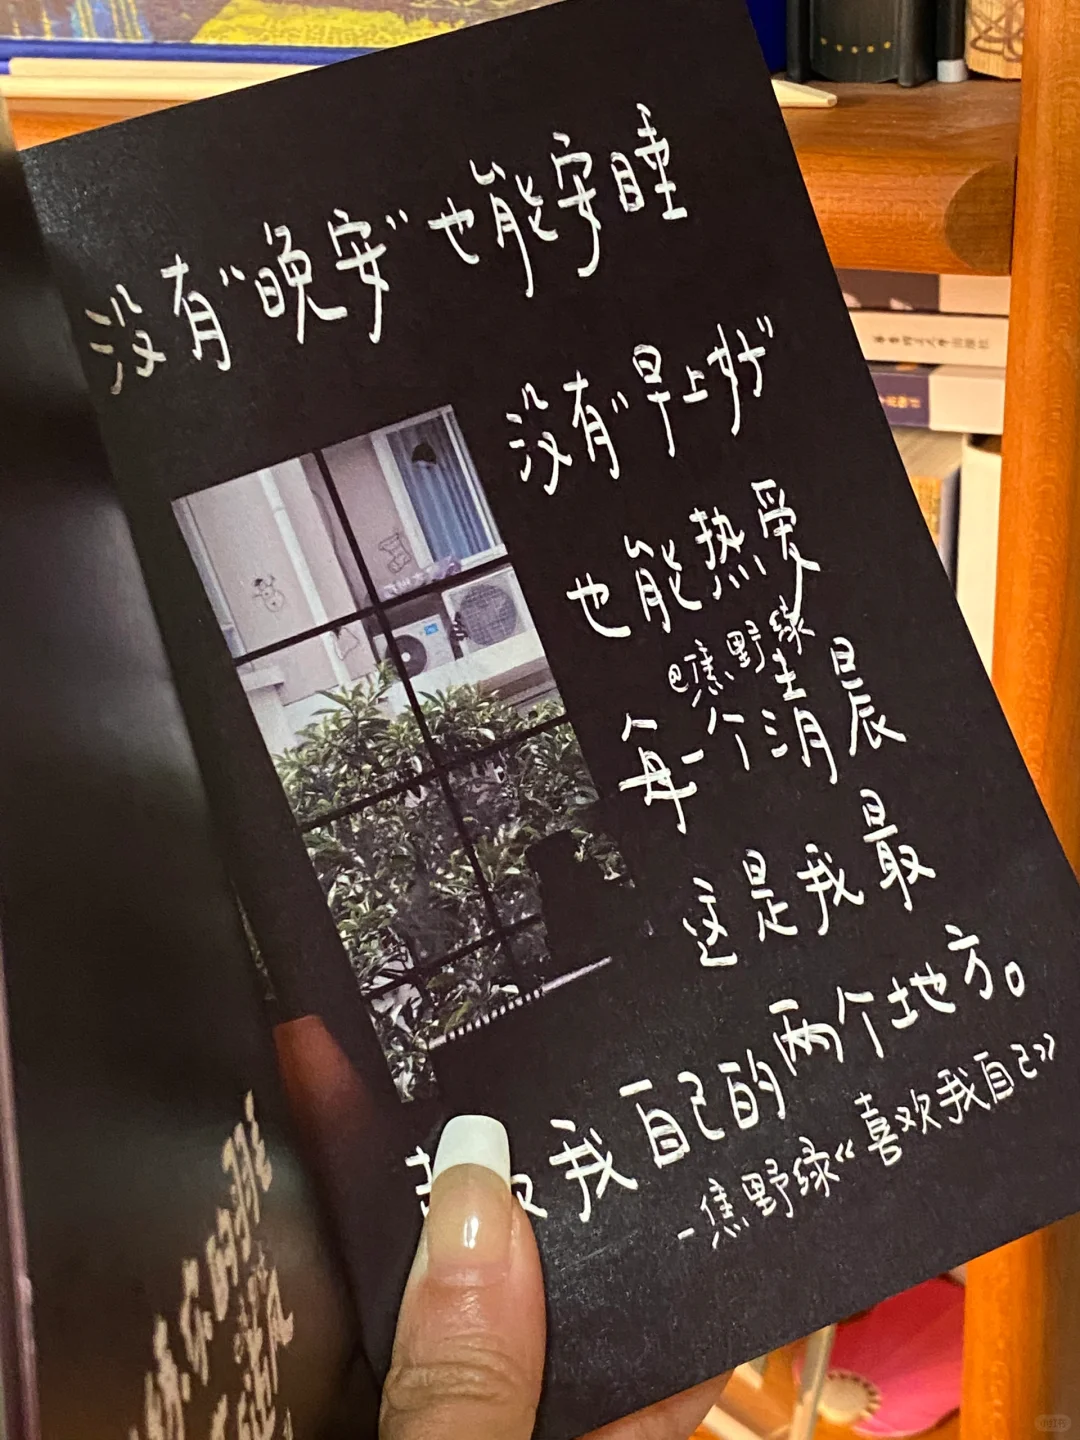 没有“晚安”也能安睡
没有“早上好”
也能热爱
@焦野绿
每一个清晨
这是我最
我自己的两个地方。
-焦野绿《喜欢我自己》
小红书